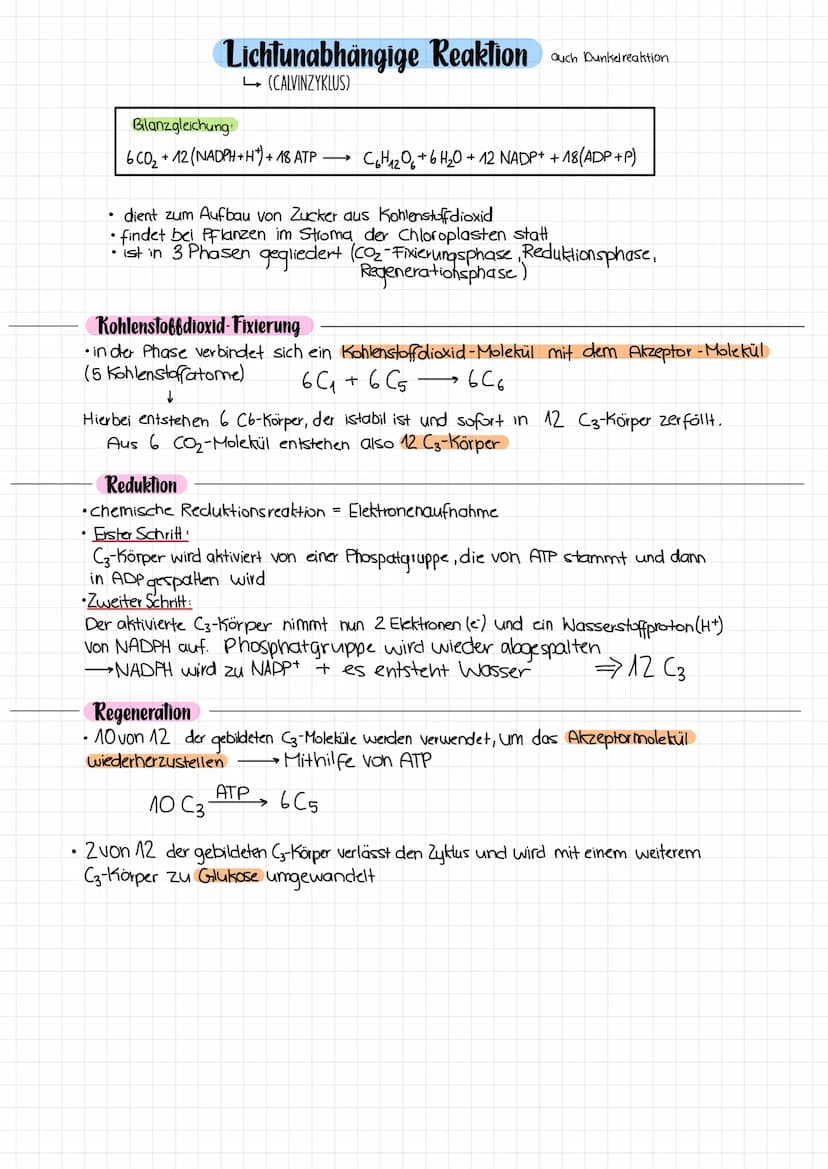 Lichtunabhängige Reaktion auch Dunkelreaktion
↳ (CALVINZYKLUS)
Bilanzgleichung:
6 CO₂ + 12 (NADPH + H⁺) + 18 ATP ⟶ C₆H₁₂O₆ + 6 H₂O + 12 NADP+ + 18 (ADP + P)
• dient zum Aufbau von Zucker aus Kohlenstoffdioxid
• findet bei Pflanzen im Stroma der Chloroplasten statt
• ist in 3 Phasen gegliedert (CO₂-Fixierungsphase, Reduktionsphase,
Regenerationsphase)
Kohlenstoffdioxid-Fixierung
• in der Phase verbindet sich ein Kohlenstoffdioxid-Molekül mit dem Akzeptor-Molekül
(5 Kohlenstoffatome) 6 C₁ + 6 C₅ ⟶ 6 C₆
↓
Hierbei entstehen 6 C6-Körper, der istabil ist und sofort in 12 C₃-Körper zerfällt.
Aus 6 CO₂-Molekül entstehen also 12 C₃-Körper
Reduktion
• chemische Reduktionsreaktion = Elektronenaufnahme
• Erster Schritt:
C₃-Körper wird aktiviert von einer Phospatgruppe, die von ATP stammt und dann
in ADP gespalten wird
• Zweiter Schritt:
Der aktivierte C₃-Körper nimmt nun 2 Elektronen (e⁻) und ein Wasserstoffproton (H⁺)
von NADPH auf. Phosphatgruppe wird wieder abgespalten
⟶ NADPH wird zu NADP⁺ + es entsteht Wasser ⇒ 12 C₃
Regeneration
• 10 von 12 der gebildeten C₃-Moleküle werden verwendet, um das Akzeptormolekül
wiederherzustellen ⟶ Mithilfe von ATP
10 C₃ ATP⟶ 6 C₅
• 2 von 12 der gebildeten C₃-Körper verlässt den Zyklus und wird mit einem weiterem
C₃-Körper zu Glukose umgewandelt